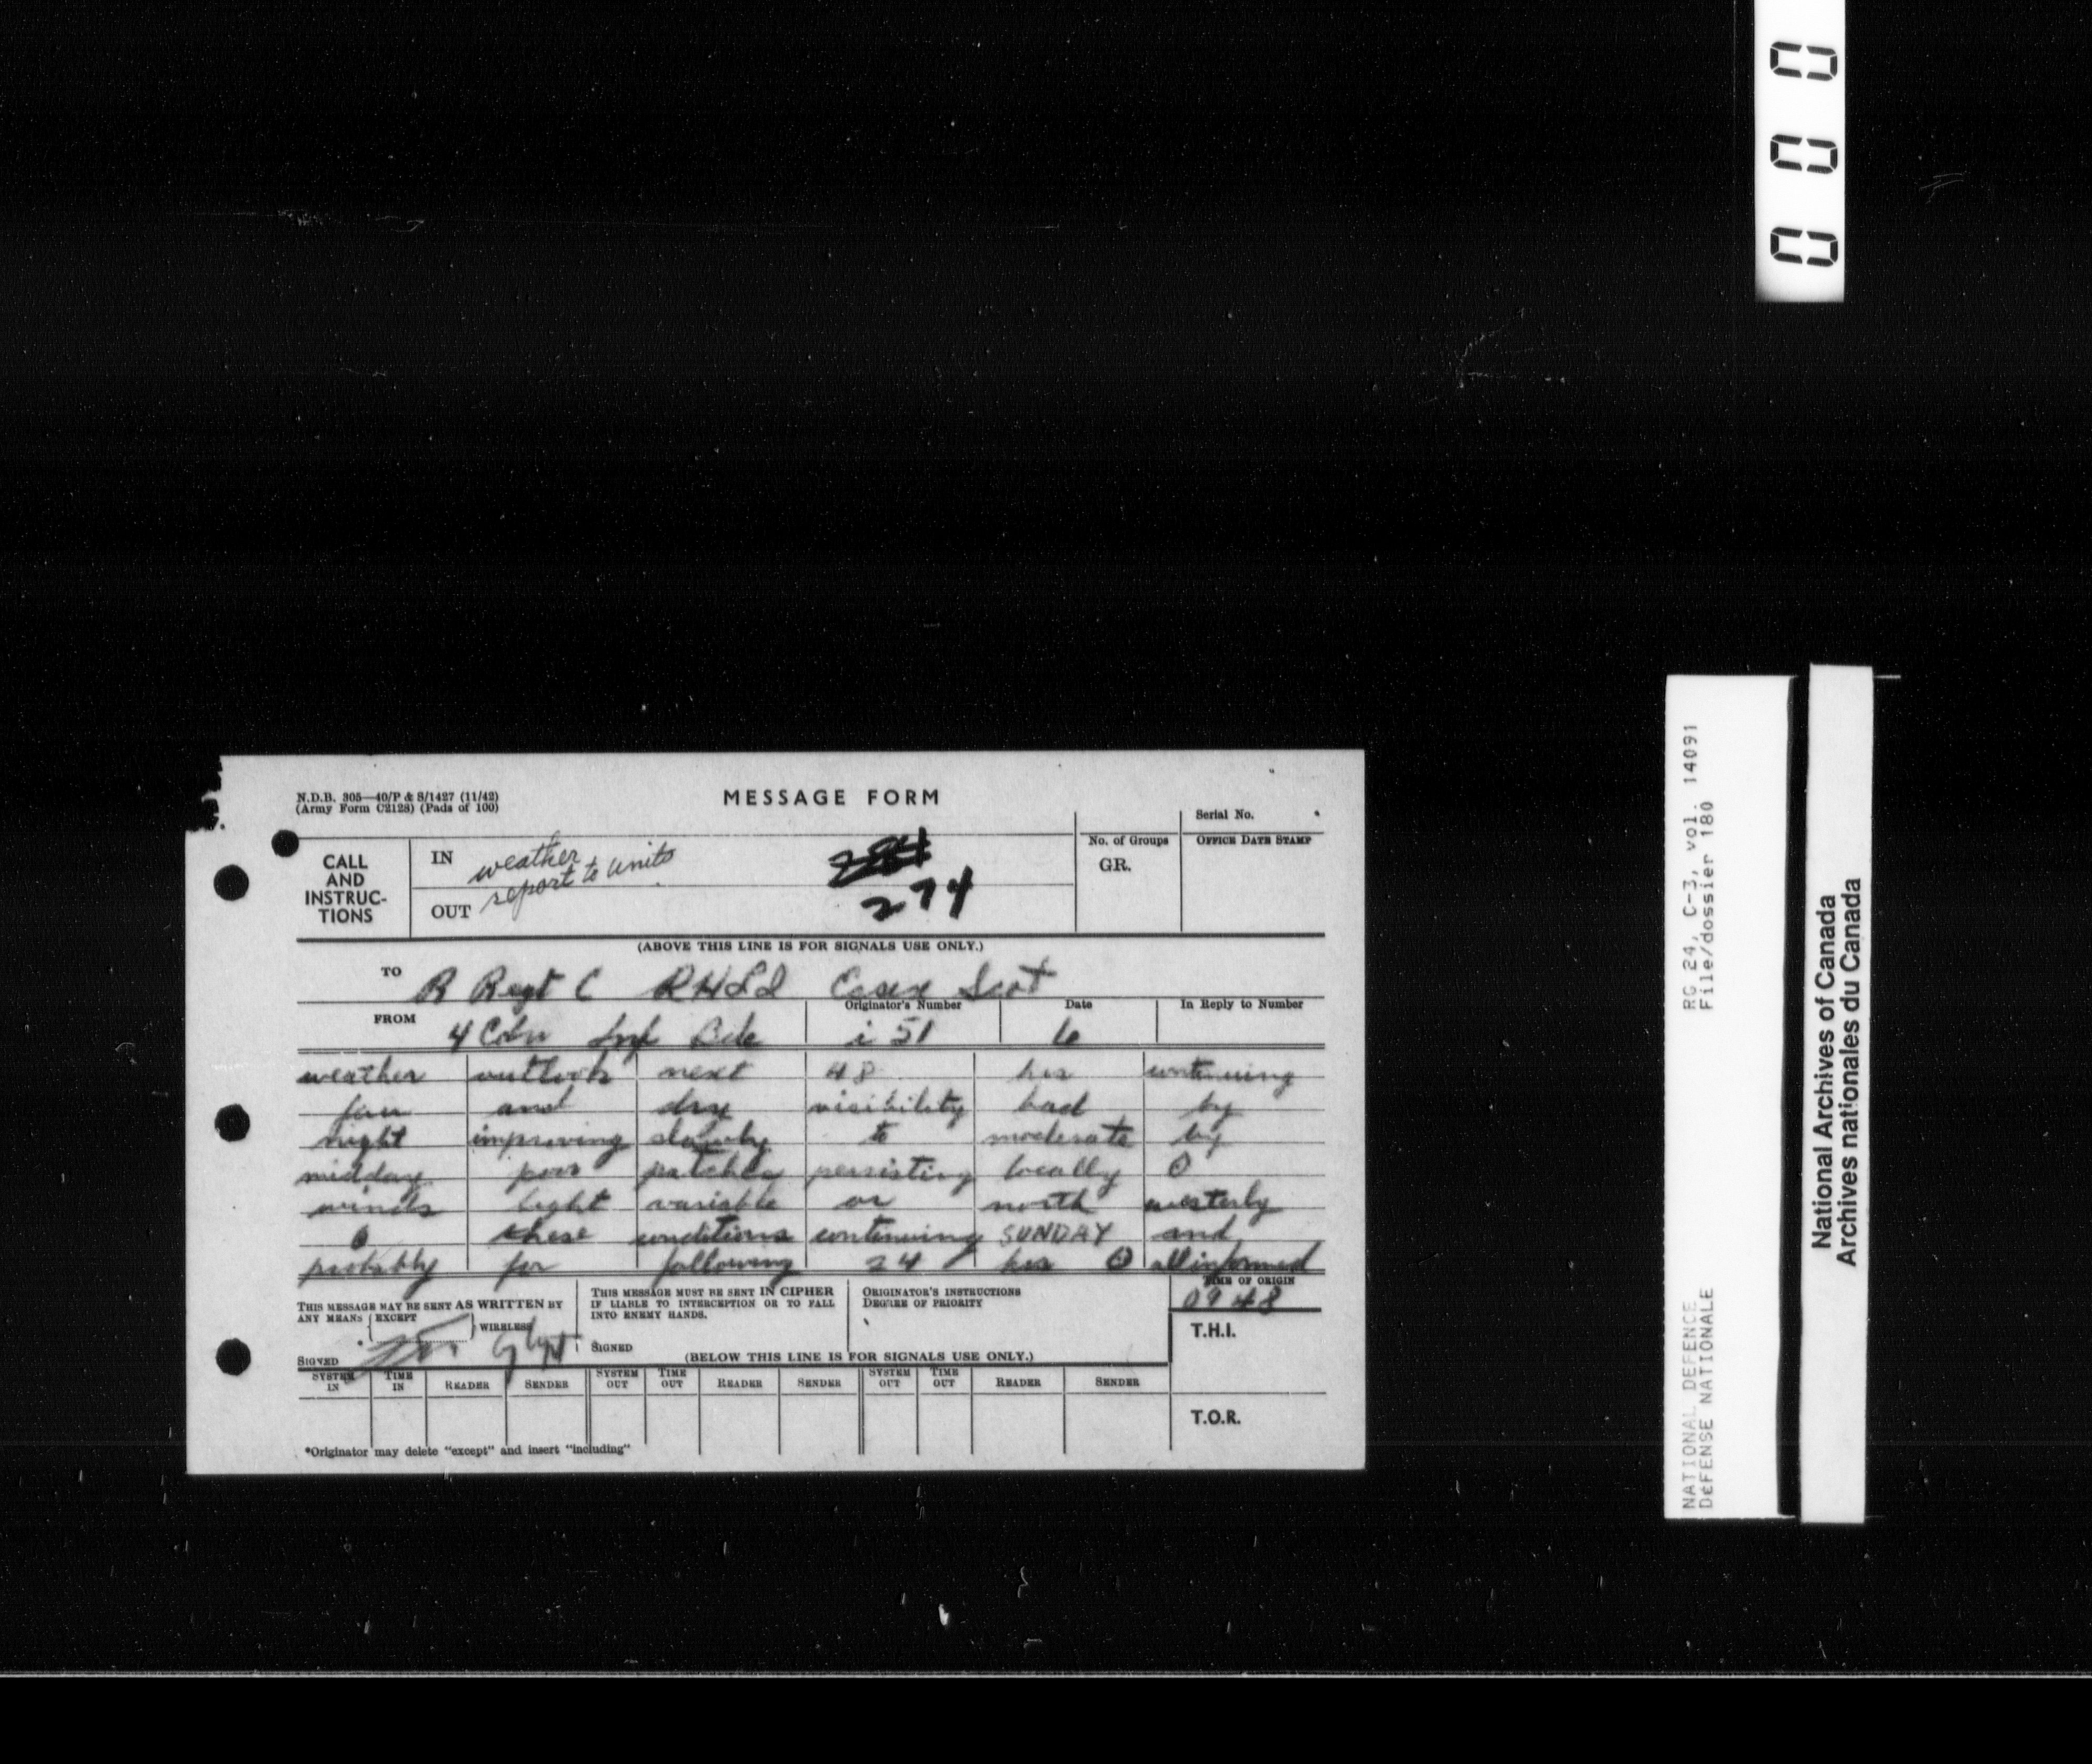 0 0 0
N.D.B. 305—40/P & S/1427 (11/42)
(Army Form C2128) (Pads of 100)
MESSAGE FORM
Serial No.
CALL AND INSTRUC-TIONS
IN weather
report to units
OUT
274
No. of Groups
GR.
OFFICE DATE STAMP
(ABOVE THIS LINE IS FOR SIGNALS USE ONLY.)
TO R Regt C RHLI Essex Scot
FROM 4 Cdn Inf Bde
Originator's Number i 51
Date 6
In Reply to Number
weather outlook next 48 hrs continuing
fair and dry visibility bad by
night improving slowly to moderate by
midday poor patches persisting locally O
winds light variable or north westerly
O these conditions continuing SUNDAY and
probably for following 24 hrs O all informed
THIS MESSAGE MAY BE SENT AS WRITTEN BY
ANY MEANS EXCEPT WIRELESS
SIGNED
THIS MESSAGE MUST BE SENT IN CIPHER
IF LIABLE TO INTERCEPTION OR TO FALL
INTO ENEMY HANDS.
SIGNED
ORIGINATOR'S INSTRUCTIONS
DEGREE OF PRIORITY
TIME OF ORIGIN
0948
T.H.I.
(BELOW THIS LINE IS FOR SIGNALS USE ONLY.)
SYSTEM IN TIME IN READER SENDER SYSTEM OUT TIME OUT READER SENDER SYSTEM OUT TIME OUT READER SENDER
T.O.R.
*Originator may delete "except" and insert "including"
RG 24, C-3, vol. 14091
File/dossier 180
NATIONAL DEFENCE
DÉFENSE NATIONALE
National Archives of Canada
Archives nationales du Canada